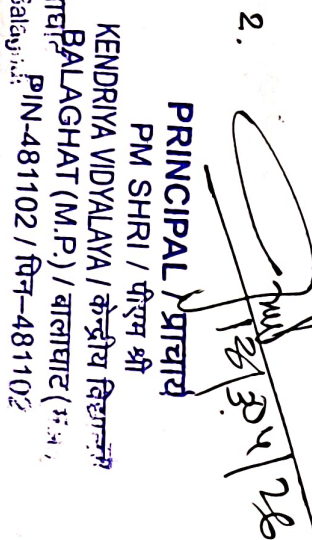 2.
30/4/26
PRINCIPAL / प्राचार्य
PM SHRI / पीएम श्री
KENDRIYA VIDYALAYA / केन्द्रीय विद्यालय
BALAGHAT (M.P.) / बालाघाट (म.प्र.
PIN-481102 / पिन-481102